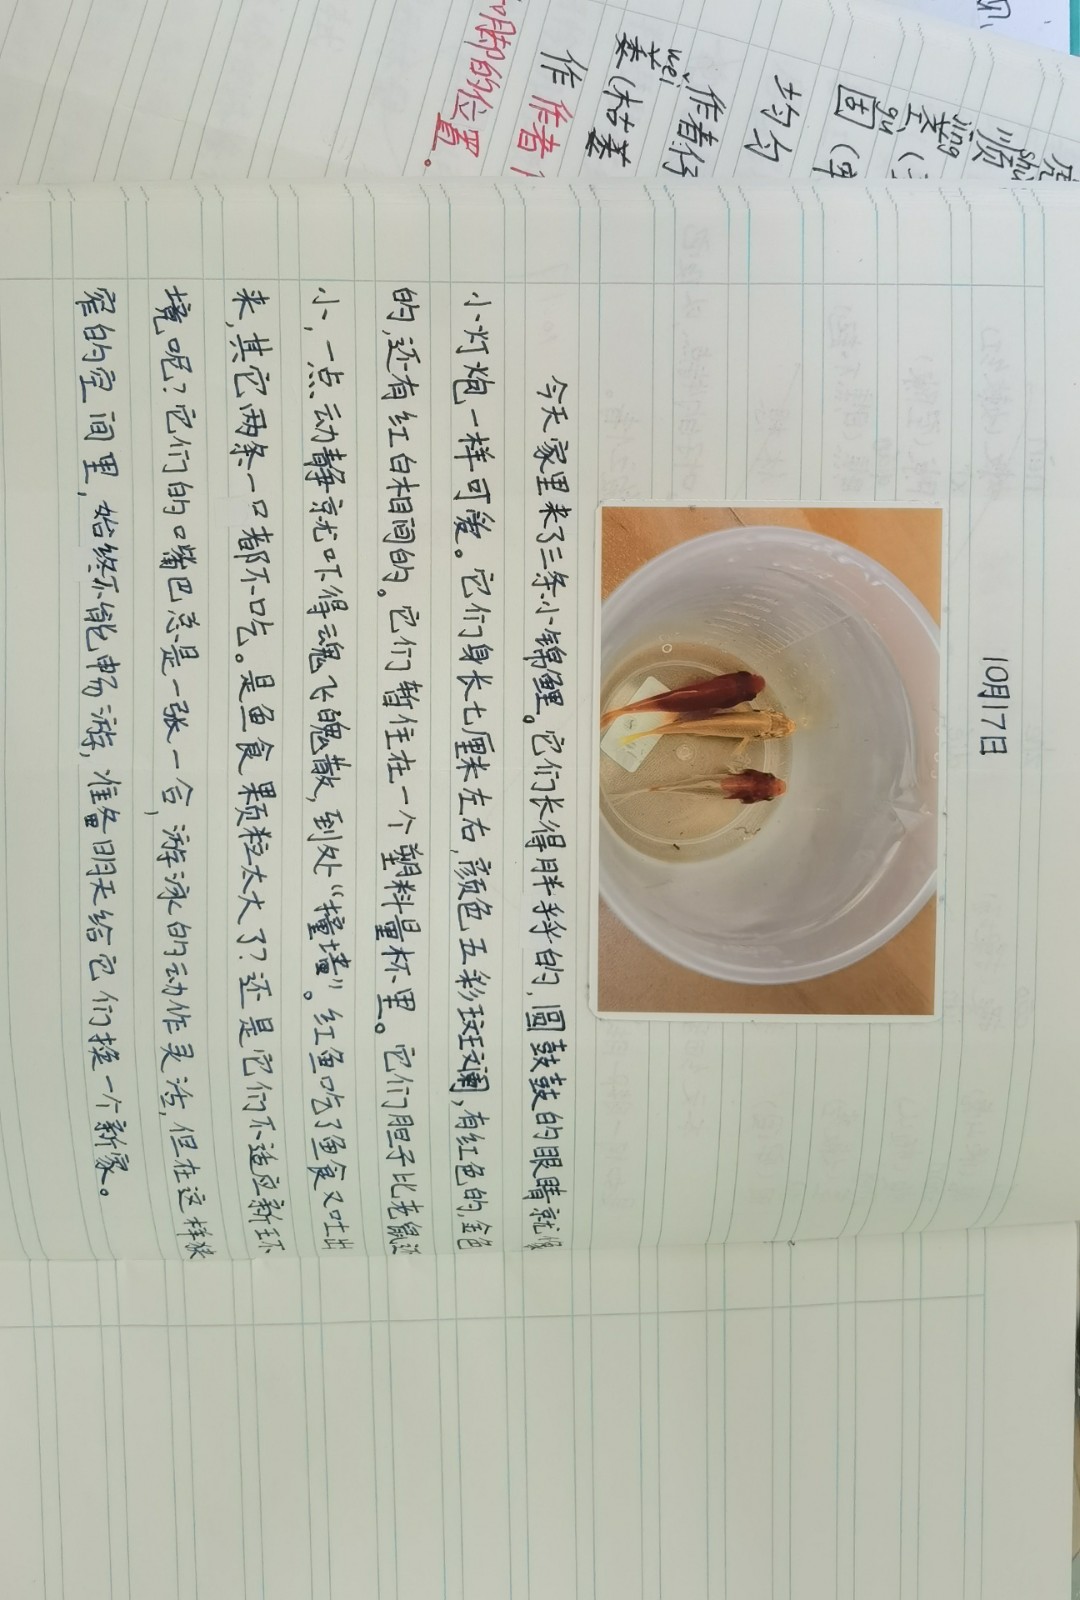 10月17日
今天家里来了三条小锦鲤。它们长得胖乎乎的,圆鼓鼓的眼睛就像
小灯炮一样可爱。它们身长七厘米左右,颜色五彩斑斓,有红色的,金色
的,还有红白相间的。它们暂住在一个塑料量杯里。它们胆子比老鼠还
小,一点动静就吓得魂飞魄散,到处“撞墙”。红鱼吃了鱼食又吐出
来,其它两条一口都不吃。是鱼食颗粒太大了?还是它们不适应新环
境呢?它们的嘴巴总是一张一合,游泳的动作灵活,但在这样狭
窄的空间里,始终不能畅游,准备明天给它们换一个新家。
顺
shù
jīng
茎(
gù
固(牢
均匀
作者仔
wěi
萎(枯萎
作 作者
脚的位置。